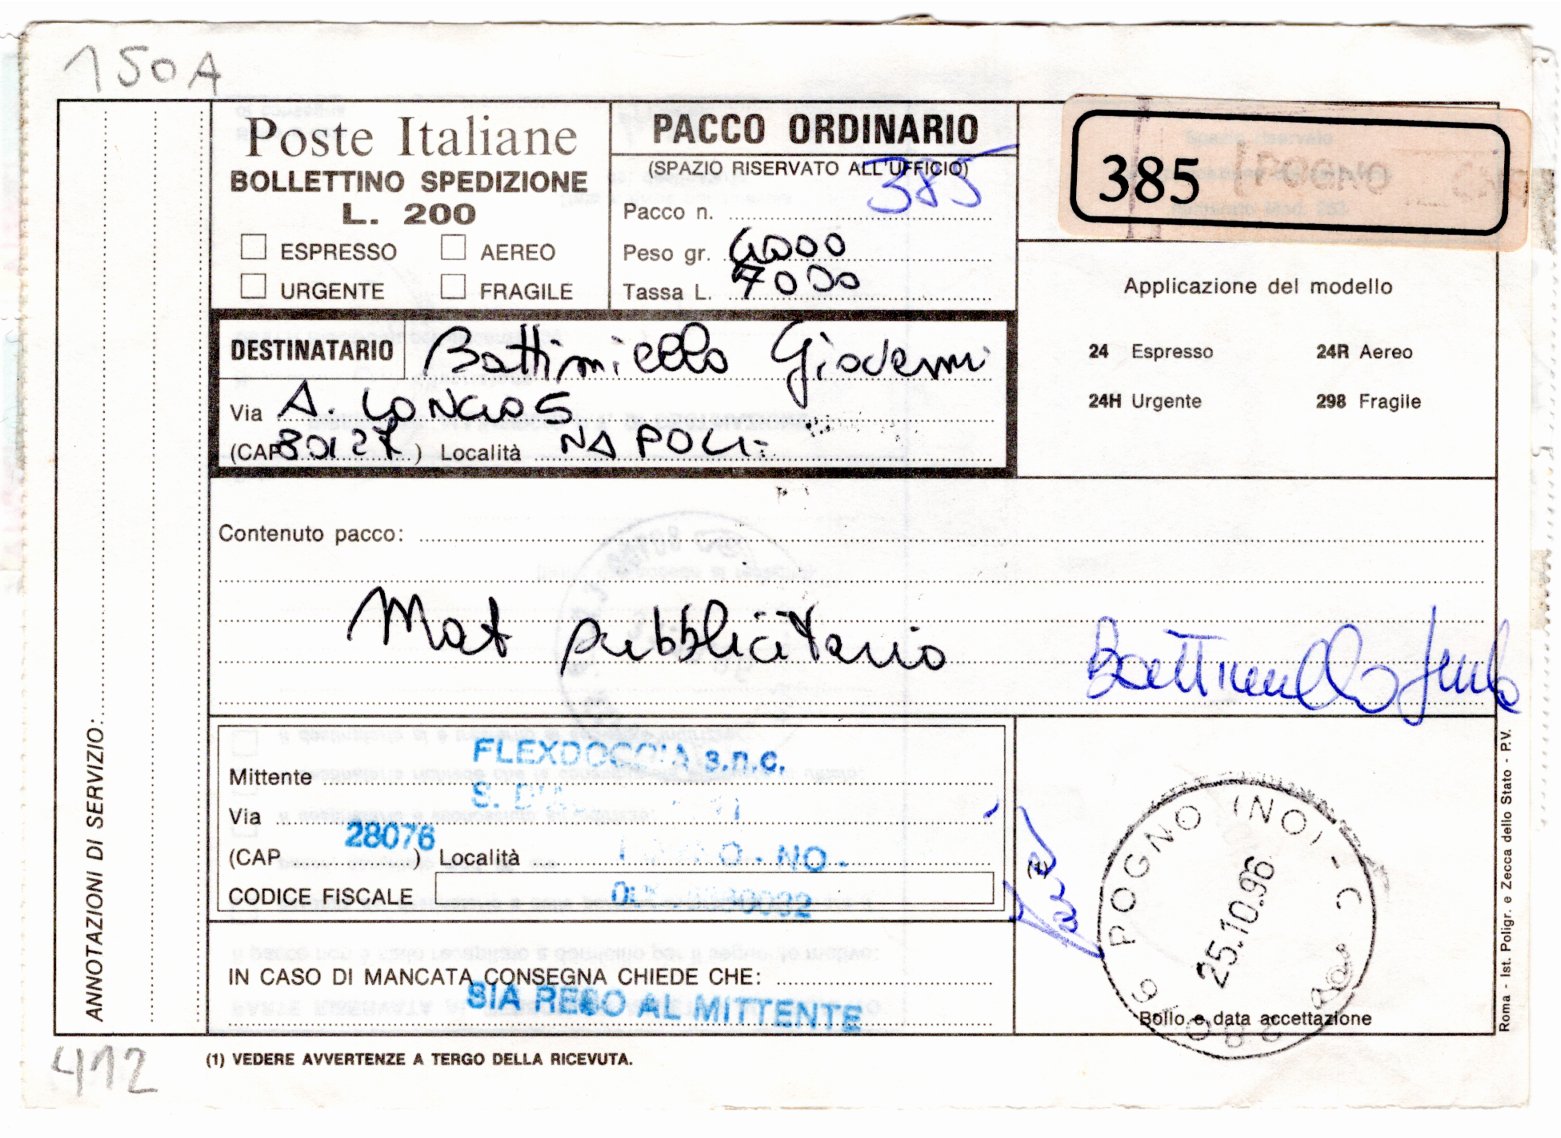 150A
Poste Italiane
BOLLETTINO SPEDIZIONE
L. 200
ESPRESSO AEREO
URGENTE FRAGILE
PACCO ORDINARIO
(SPAZIO RISERVATO ALL'UFFICIO)
Pacco n. 385
Peso gr. 4000
Tassa L. 7000
385
Applicazione del modello
24 Espresso 24R Aereo
24H Urgente 298 Fragile
DESTINATARIO Battimiello Giovanni
Via A. LONGO 5
(CAP 80127) Località NAPOLI
Contenuto pacco:
Mat pubblicitario
Battimiello
Mittente FLEXDOCCIA s.n.c.
Via S.
(CAP 28076) Località - NO -
CODICE FISCALE
IN CASO DI MANCATA CONSEGNA CHIEDE CHE:
SIA RESO AL MITTENTE
POGNO (NO) - C
25.10.96
28076
Bollo e data accettazione
ANNOTAZIONI DI SERVIZIO:
Roma - Ist. Poligr. e Zecca dello Stato - P.V.
412
(1) VEDERE AVVERTENZE A TERGO DELLA RICEVUTA.